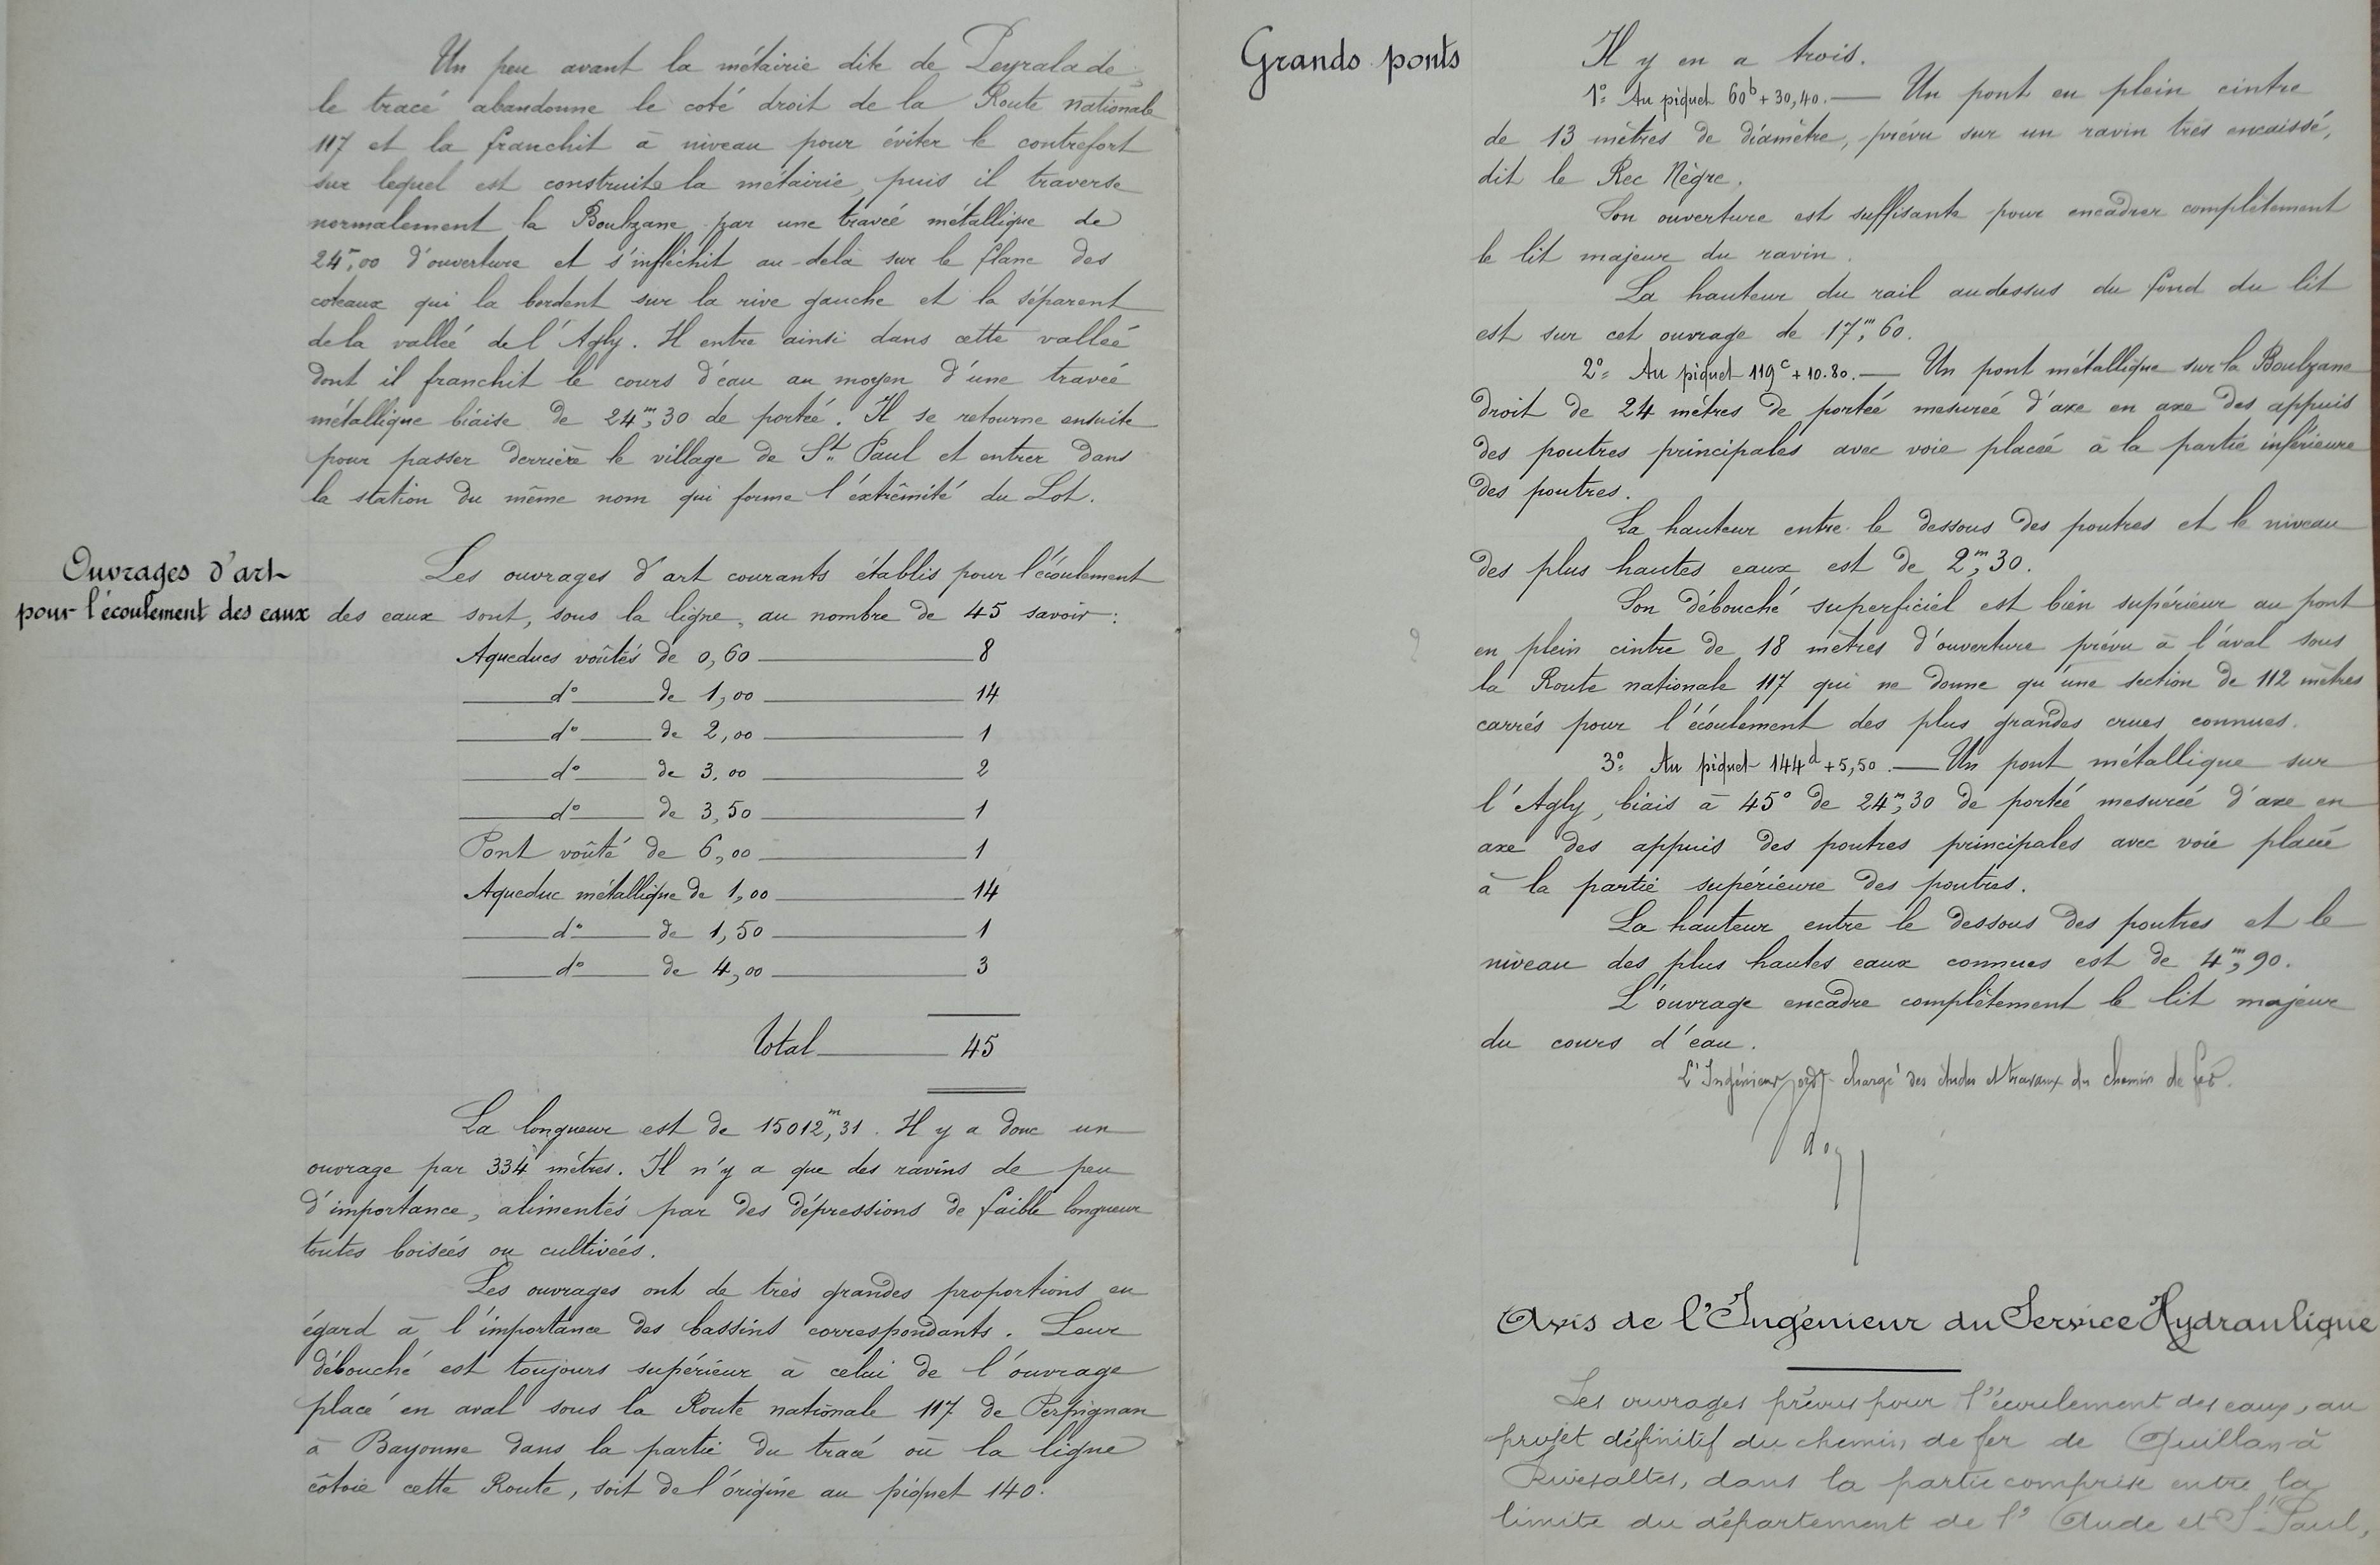 Un peu avant la métairie dite de Peyralade,
le tracé abandonne le coté droit de la Route nationale
117 et la franchit à niveau pour éviter le contrefort
sur lequel est construite la métairie, puis il traverse
normalement la Boulzane par une travée métallique de
24m,00 d'ouverture et s'infléchit au-delà sur le flanc des
coteaux qui la bordent sur la rive gauche et la séparent
de la vallée de l'Agly. Il entre ainsi dans cette vallée
dont il franchit le cours d'eau au moyen d'une travée
métallique biaise de 24m,30 de portée. Il se retourne ensuite
pour passer derrière le village de St Paul et entrer dans
la station du même nom qui forme l'éxtrêmité du Lot.
Ouvrages d'art
pour l'écoulement des eaux
Les ouvrages d'art courants établis pour l'écoulement
des eaux sont, sous la ligne, au nombre de 45 savoir:
Aqueducs voûtés de 0,60 8
do de 1,00 14
do de 2,00 1
do de 3,00 2
do de 3,50 1
Pont voûté de 6,00 1
Aqueduc métallique de 1,00 14
do de 1,50 1
do de 4,00 3
Total 45
La longueur est de 15012m,31. Il y a donc un
ouvrage par 334 mètres. Il n'y a que des ravins de peu
d'importance, alimentés par des dépressions de faible longueur
toutes boisées ou cultivées.
Les ouvrages ont de très grandes proportions eu
égard à l'importance des bassins correspondants. Leur
débouché est toujours supérieur à celui de l'ouvrage
placé en aval sous la Route nationale 117 de Perpignan
à Bayonne dans la partie du tracé où la ligne
côtoie cette Route, soit de l'origine au piquet 140.
Grands ponts
Il y en a trois.
1o Au piquet 60b + 30,40. — Un pont en plein cintre
de 13 mètres de diamètre, prévu sur un ravin très encaissé,
dit le Rec Nègre.
Son ouverture est suffisante pour encadrer complètement
le lit majeur du ravin.
La hauteur du rail audessus du fond du lit
est sur cet ouvrage de 17m,60.
2o Au piquet 119c + 10.80. — Un pont métallique sur la Boulzane
droit de 24 mètres de portée mesurée d'axe en axe des appuis
des poutres principales avec voie placée à la partie inférieure
des poutres.
La hauteur entre le dessous des poutres et le niveau
des plus hautes eaux est de 2m,30.
Son débouché superficiel est bien supérieur au pont
en plein cintre de 18 mètres d'ouverture prévu à l'aval sous
la Route nationale 117 qui ne donne qu'une section de 112 mètres
carrés pour l'écoulement des plus grandes crues connues.
3o Au piquet 144d + 5,50. — Un pont métallique sur
l'Agly, biais à 45° de 24m,30 de portée mesurée d'axe en
axe des appuis des poutres principales avec voie placée
à la partie supérieure des poutres.
La hauteur entre le dessous des poutres et le
niveau des plus hautes eaux connues est de 4m,90.
L'ouvrage encadre complètement le lit majeur
du cours d'eau.
L'Ingénieur chargé des études et travaux du chemin de fer.
Avis de l'Ingénieur du Service Hydraulique
Les ouvrages prévus pour l'écoulement des eaux, au
projet définitif du chemin de fer de Quillan à
Rivesaltes, dans la partie comprise entre la
limite du département de l'Aude et St Paul,